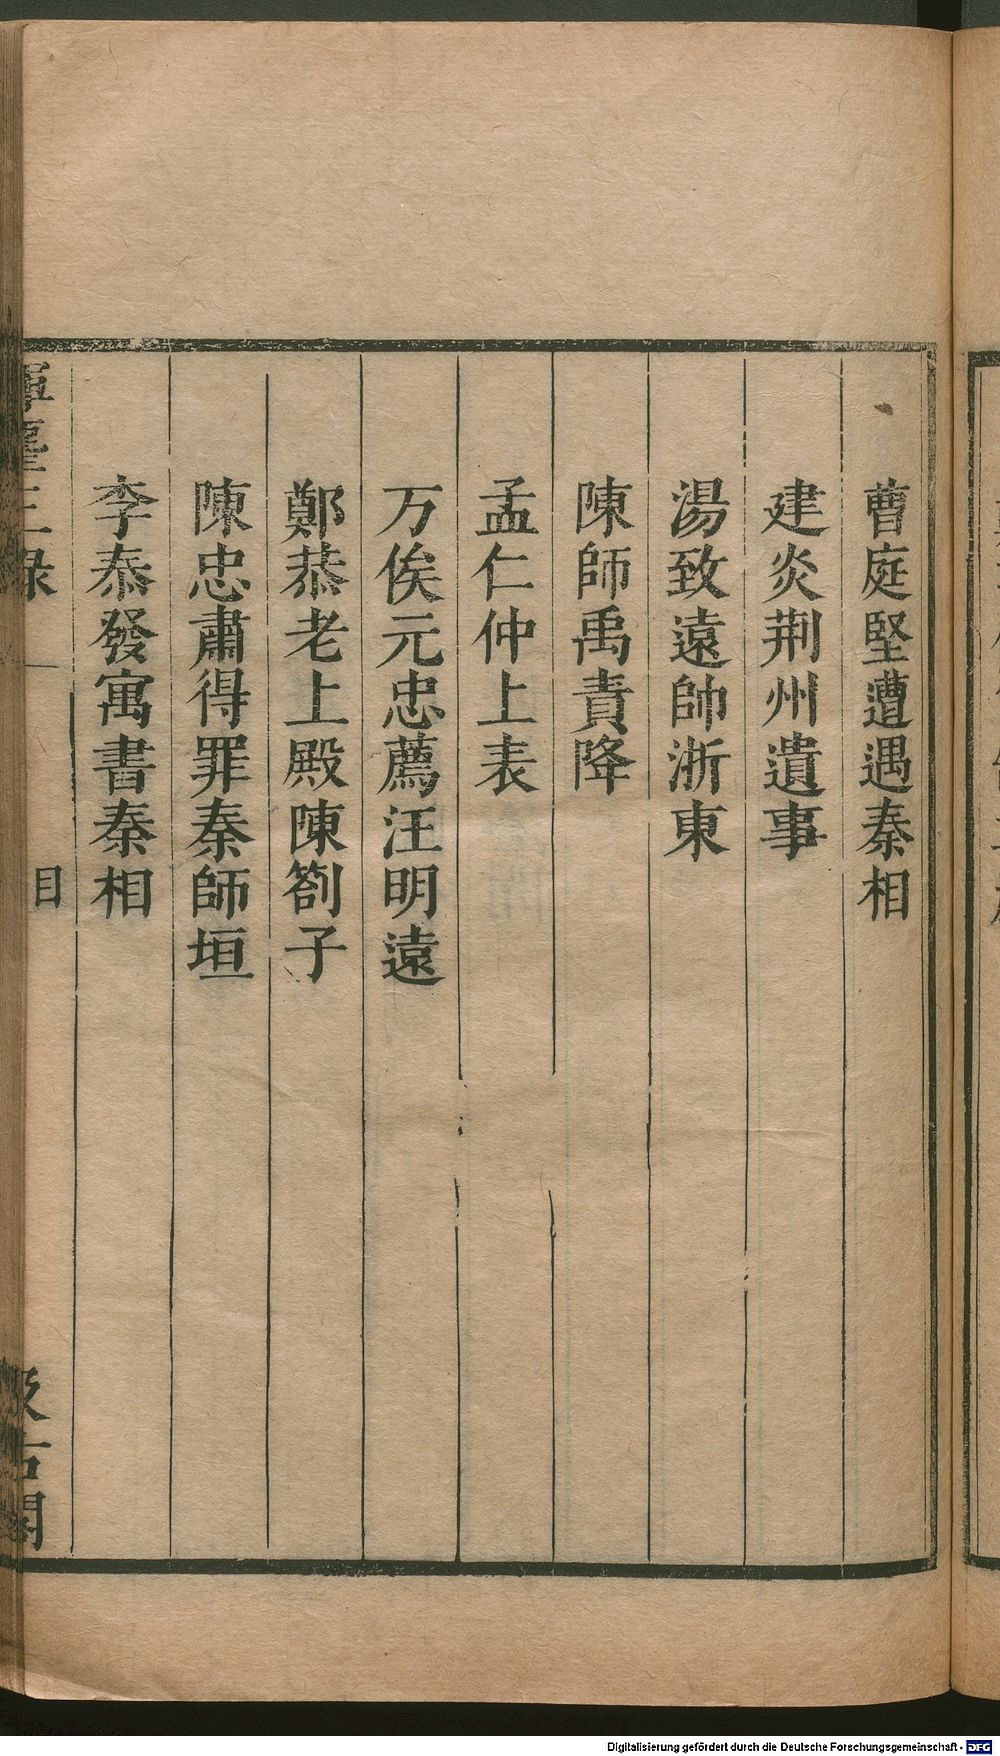 曹庭堅遭遇秦相
建炎荆州遺事
湯致遠帥浙東
陳師禹責降
孟仁仲上表
万俟元忠薦汪明遠
鄭恭老上殿陳劄子
陳忠肅得罪秦師垣
李泰發寓書秦相
揮麈三録
目
汲古閣
Digitalisierung gefördert durch die Deutsche Forschungsgemeinschaft - DFG